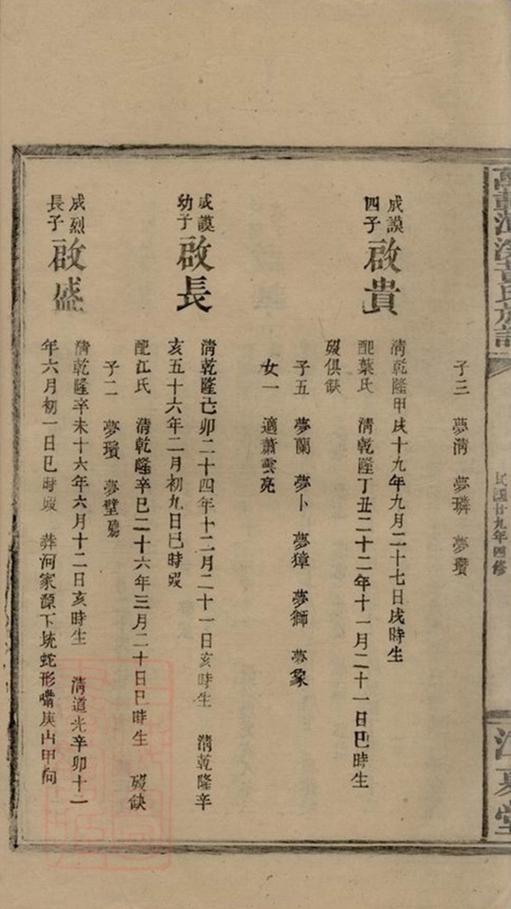 氏族譜
民國廿九年四修
江夏堂
子三 夢淸 夢璘 夢瓚
成謨四子 啟貴
淸乾隆甲戌十九年九月二十七日戌時生
配葉氏 淸乾隆丁丑二十二年十一月二十一日巳時生
歿俱缺
子五 夢蘭 夢卜 夢獐 夢獅 夢象
女一 適蕭雲亮
成謨幼子 啟長
淸乾隆己卯二十四年十二月二十一日亥時生 淸乾隆辛
亥五十六年二月初九日巳時歿
配江氏 淸乾隆辛巳二十六年三月二十日巳時生 歿缺
子二 夢瓚 夢璧
成烈長子 啟盛
淸乾隆辛未十六年六月十二日亥時生 淸道光辛卯十一
年六月初一日巳時歿 葬河家源下坑蛇形嘴庚山甲向